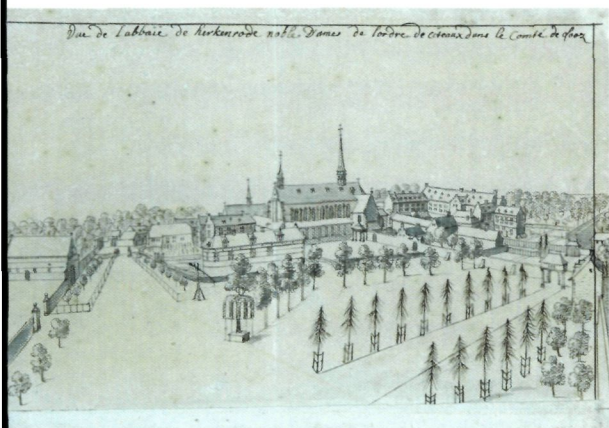 Vue de l'abbaie de herkenrode noble Dames de lordre de citeaux dans le Comté de Looz